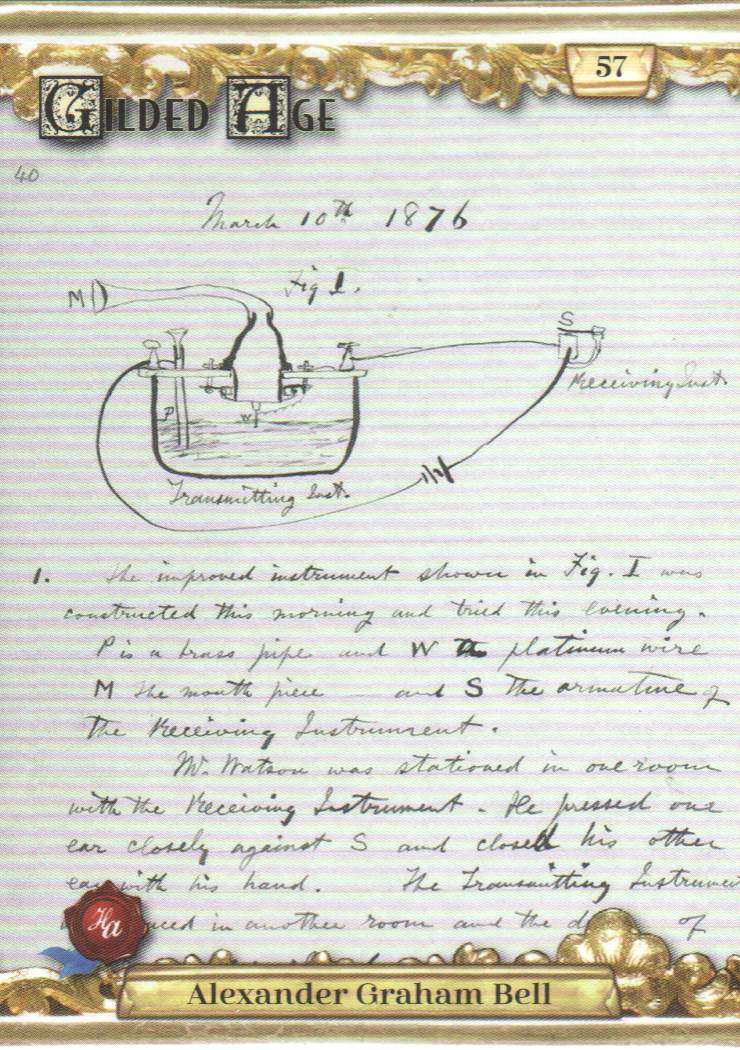 57
GILDED AGE
40
March 10th 1876
Fig 1.
M
S
Receiving Inst.
P
W
Transmitting Inst.
1. The improved instrument shown in Fig. I was
constructed this morning and tried this evening.
P is a brass pipe and W the platinum wire
M the mouth piece — and S the armature of
the Receiving Instrument.
Mr. Watson was stationed in one room
with the Receiving Instrument. He pressed one
ear closely against S and closed his other
ear with his hand. The Transmitting Instrument
in another room and the of
Ha
Alexander Graham Bell